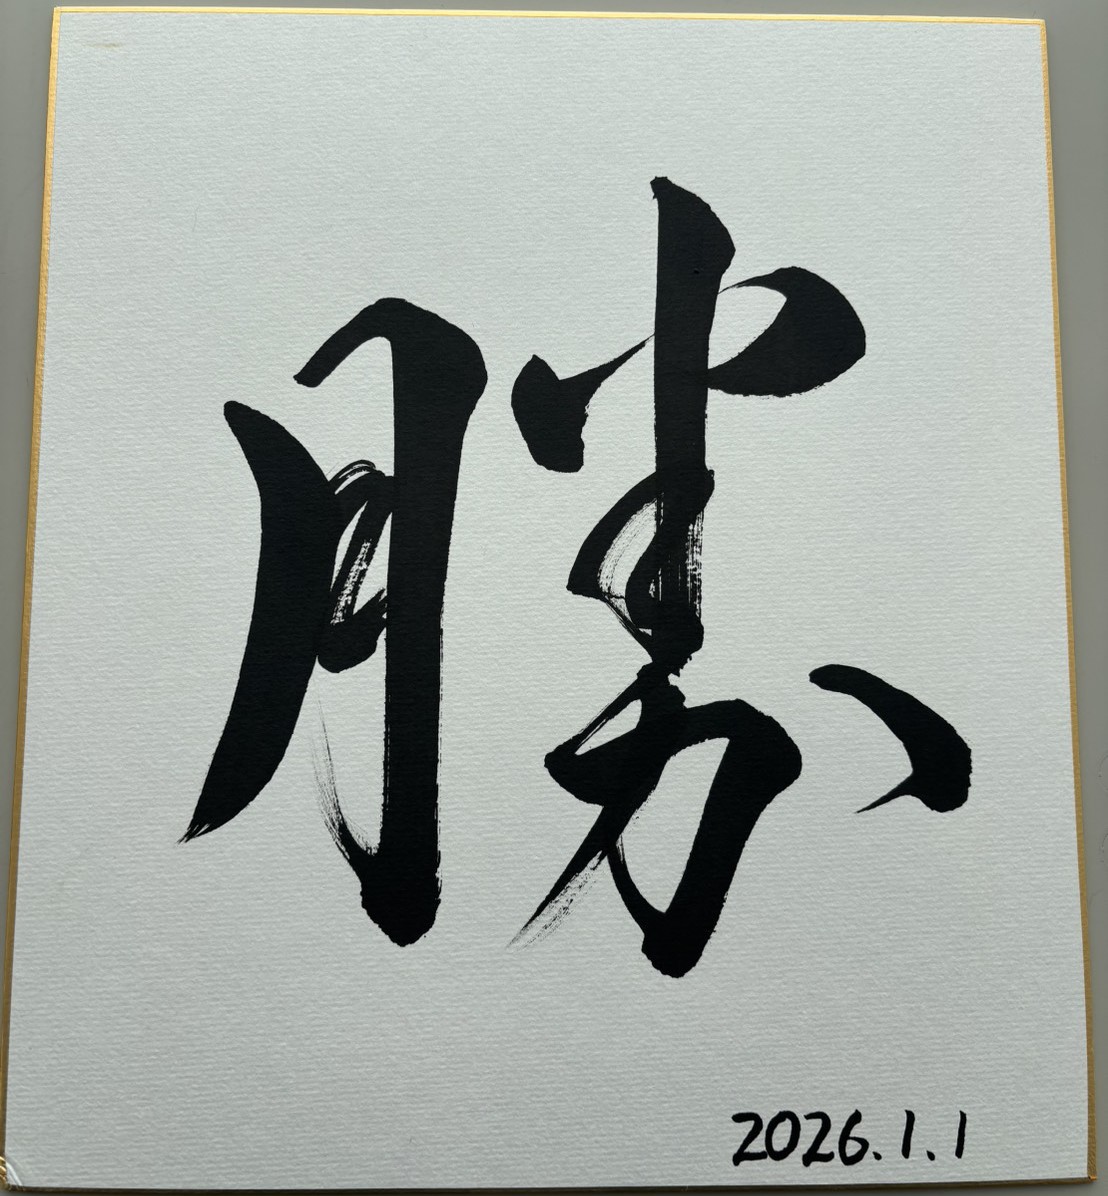 勝
2026.1.1